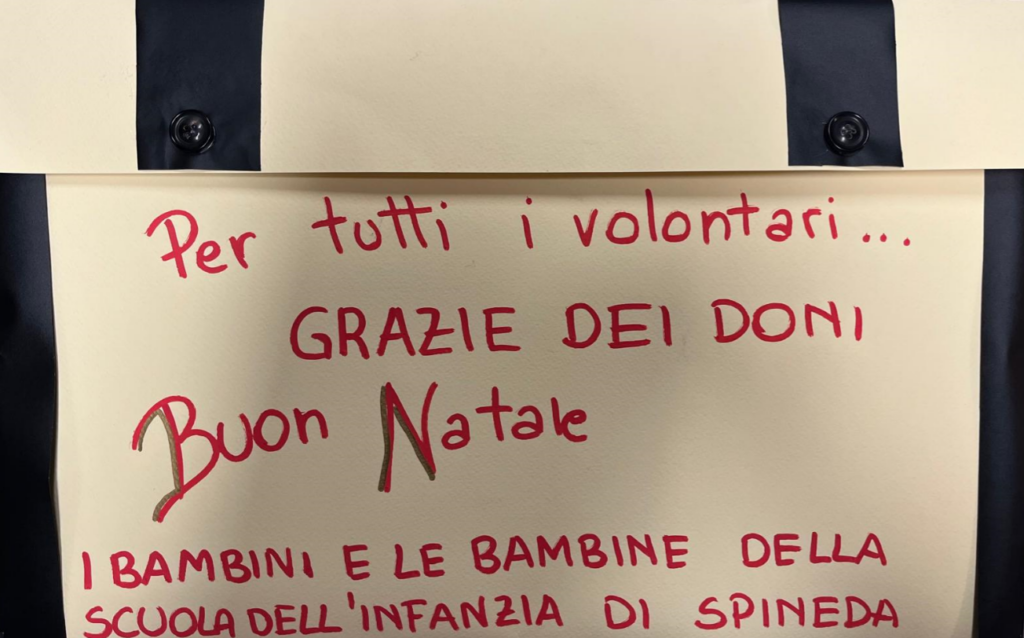 Per tutti i volontari...
GRAZIE DEI DONI
Buon Natale
I BAMBINI E LE BAMBINE DELLA
SCUOLA DELL'INFANZIA DI SPINEDA